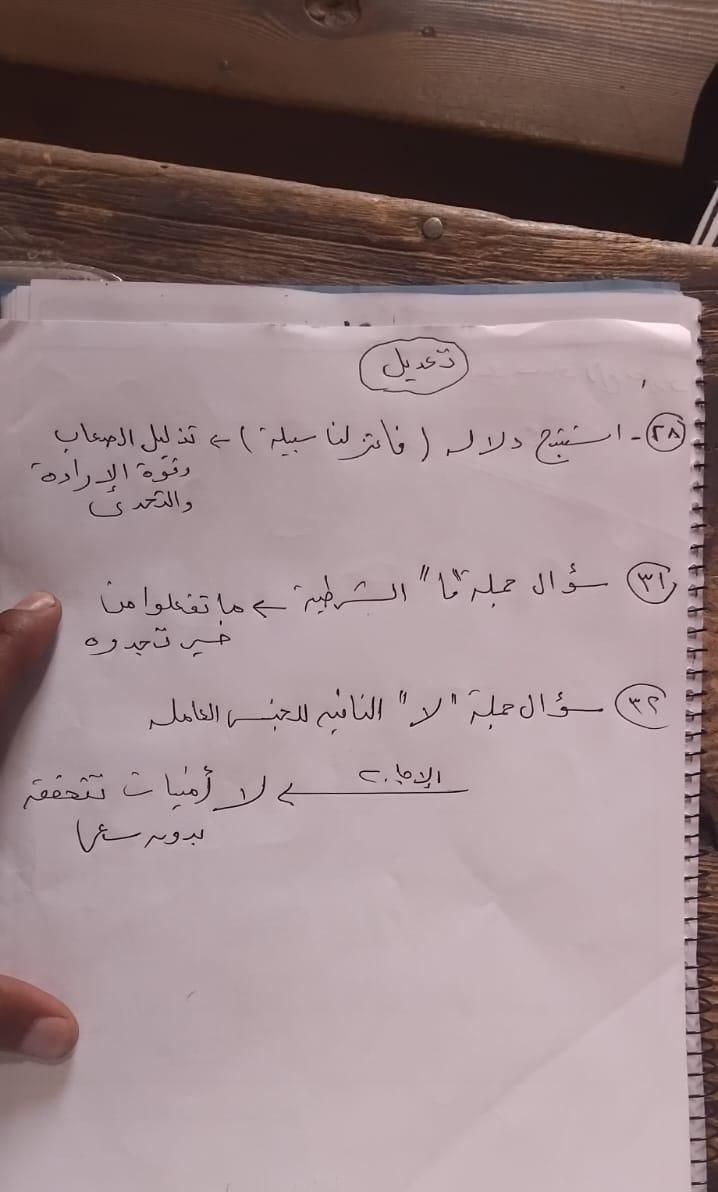 تعديل
٢٨ - استنتج دلالة ( لنا سبيله ) ← تذليل الصعاب
وقوة الإرادة
والتحدى
٣١ سؤال جملة "ما" الشرطية ← ما تفعلوا من
خير تجدوه
٣٢ سؤال جملة "لا" النافيه للجنس العامله
الإجابة ← لا أمنيات تتحقق
بدون سعى